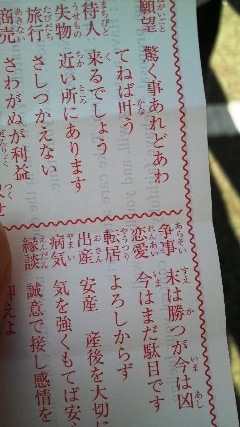 願望 驚く事あれどあわ
てねば叶う
待人 来るでしょう
失物 近い所にあります
旅行 さしつかえない
商売 さわがぬが利益
争事 末は勝つが今は凶
恋愛 今はまだ駄目です
転居 よろしからず
出産 安産 産後を大切に
病気 気を強くもてば安
縁談 誠意で接し感情を